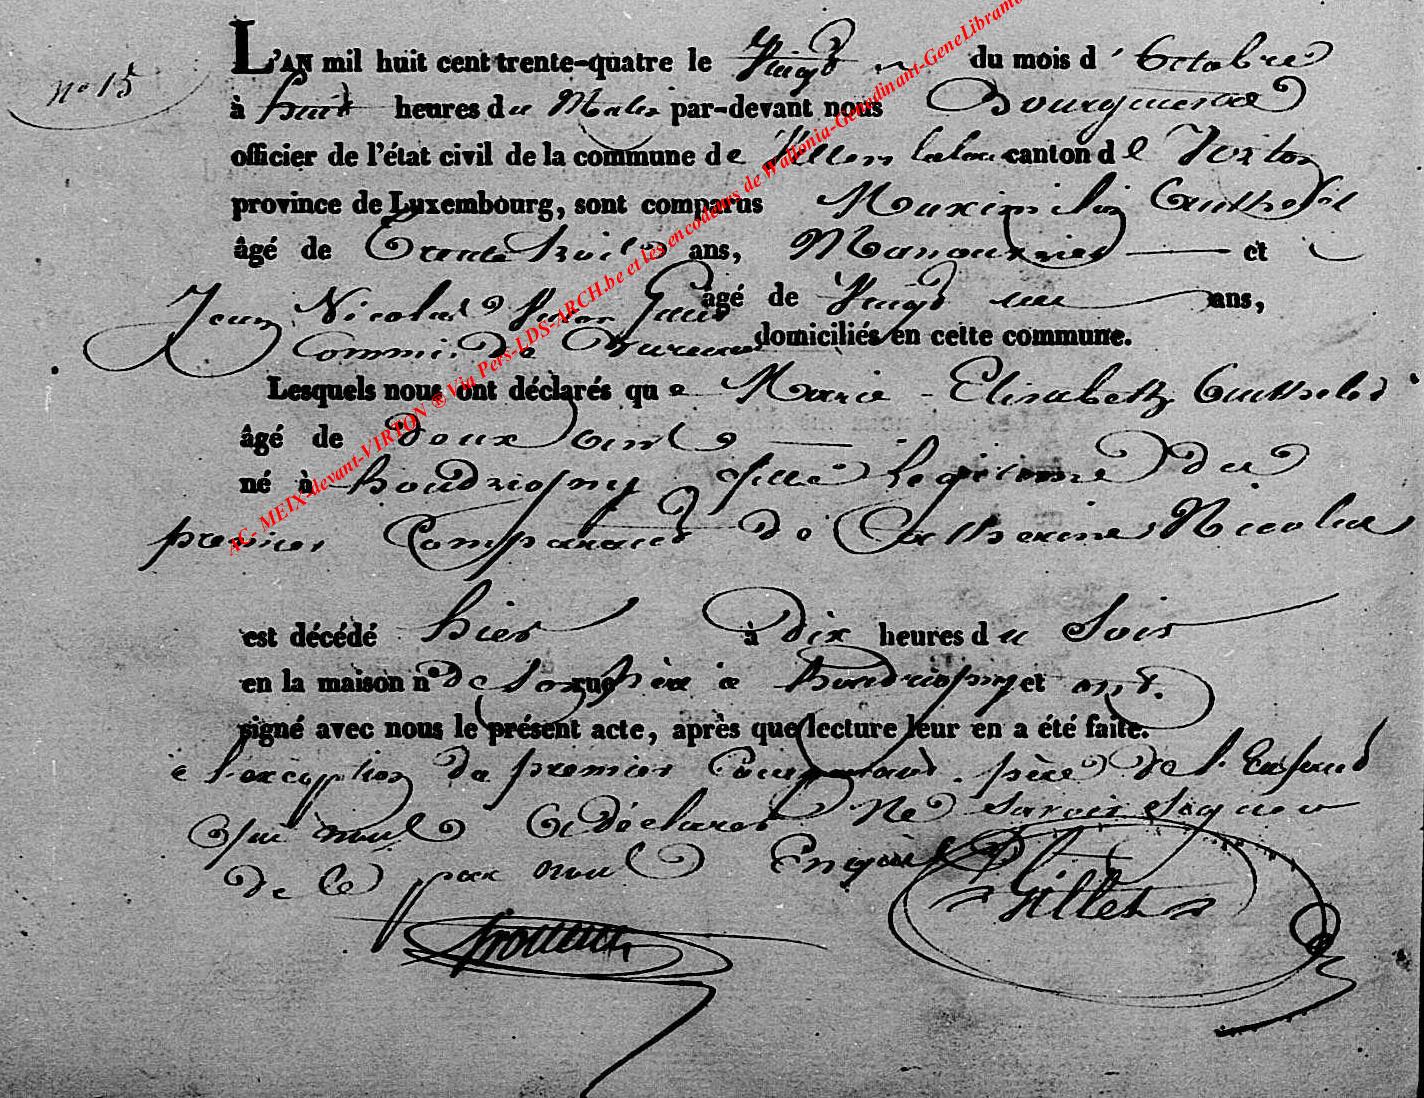 nº 15
L'AN mil huit cent trente-quatre le Vingt du mois d' Octobre
à huit heures du Matin par-devant nous Bourgmestre
officier de l'état civil de la commune de Villers canton de Virton
province de Luxembourg, sont comparus Maximilien
âgé de trente huit ans, Manouvrier et
Jean Nicolas âgé de Vingt un ans,
Commis de Bureau domiciliés en cette commune.
Lesquels nous ont déclarés que Marie - Elisabeth
âgé de deux ans
né à houdrigny fille légitime du
premier Comparant & de Catherine Nicolas
est décédé hier à dix heures du Soir
en la maison nº de rue à houdrigny et ont
signé avec nous le présent acte, après que lecture leur en a été faite.
a l'exception du premier Comparant père de l'Enfant
qui nous a déclaré Ne Savoir Signer
de ce par nous Enquis
Gillet
AC- MEIX-devant-VIRTON ® Via Pers-LDS-ARCH.be et les encodeurs de Wallonia-Genedinant-GeneLibramo